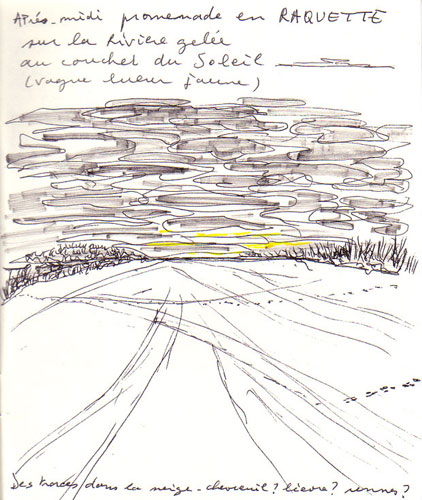 Après-midi promenade en RAQUETTE
sur la Rivière gelée
au couchet du Soleil
(vague lueur jaune)
Des traces dans la neige - chevreuil ? lievre ? rennes ?